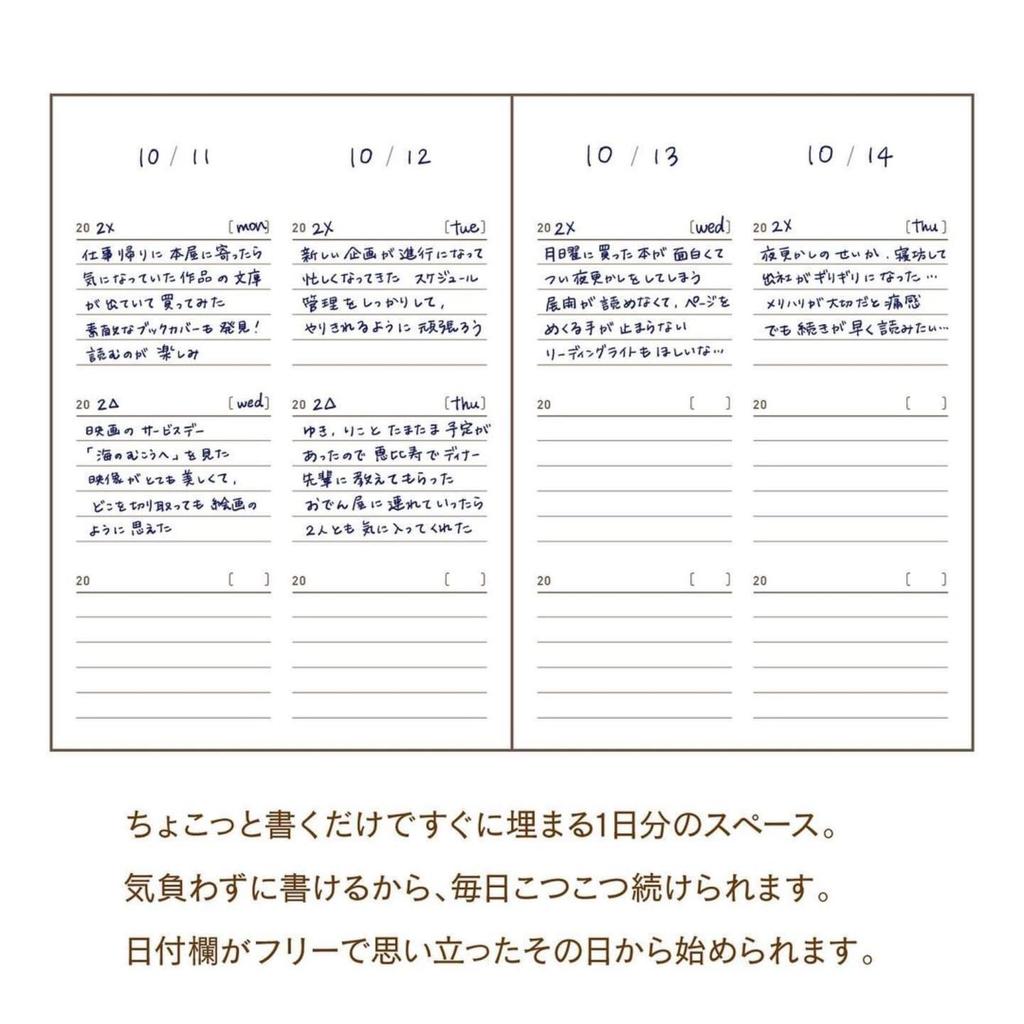 10 / 11
20 2X [mon]
仕事帰りに本屋に寄ったら
気になっていた作品の文庫
が出ていて買ってみた
素敵なブックカバーも発見!
読むのが楽しみ
20 2△ [wed]
映画のサービスデー
「海のむこうへ」を見た
映像がとても美しくて,
どこを切り取っても絵画の
ように思えた
20 [ ]
10 / 12
20 2X [tue]
新しい企画が進行になって
忙しくなってきた スケジュール
管理をしっかりして,
やりきれるように頑張ろう
20 2△ [thu]
ゆき, りことたまたま予定が
あったので恵比寿でディナー
先輩に教えてもらった
おでん屋に連れていったら
2人とも気に入ってくれた
20 [ ]
10 / 13
20 2X [wed]
月曜に買った本が面白くて
つい夜更かしをしてしまう
展開が読めなくて, ページを
めくる手が止まらない
リーディングライトもほしいな…
20 [ ]
20 [ ]
10 / 14
20 2X [thu]
夜更かしのせいか, 寝坊して
出社がギリギリになった…
メリハリが大切だと痛感
でも続きが早く読みたい…
20 [ ]
20 [ ]
ちょこっと書くだけですぐに埋まる1日分のスペース。
気負わずに書けるから、毎日こつこつ続けられます。
日付欄がフリーで思い立ったその日から始められます。